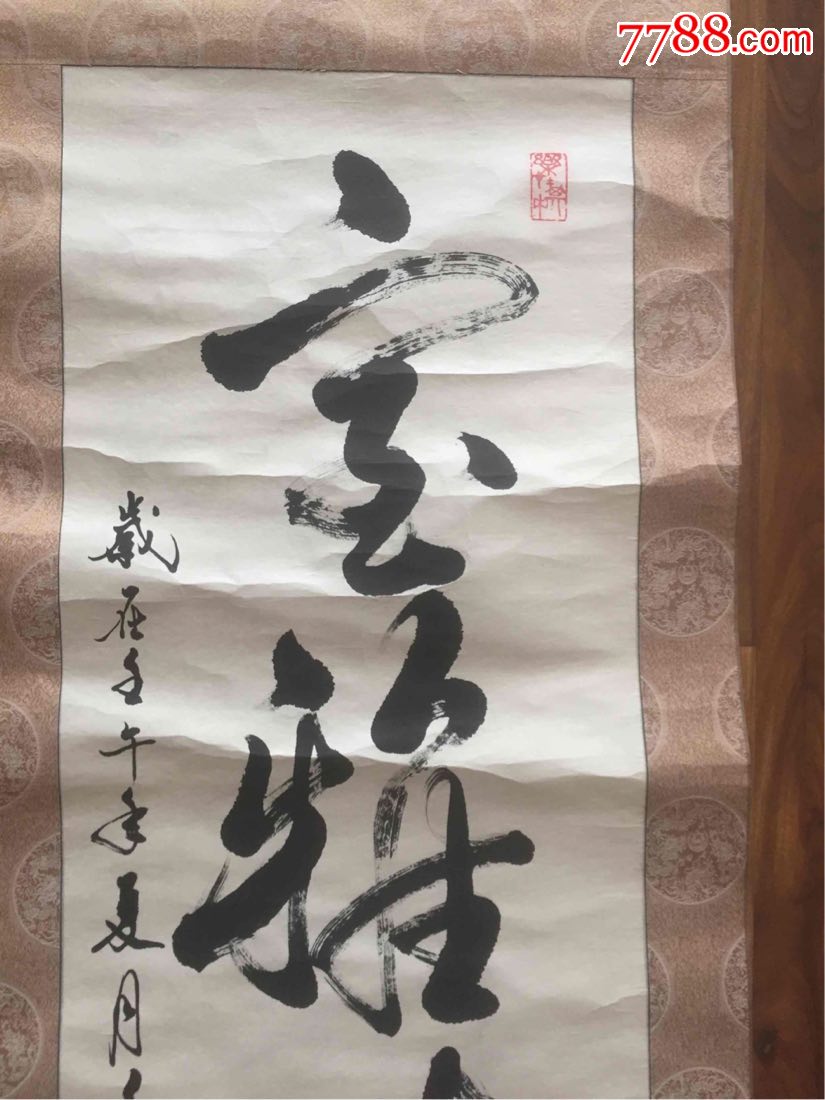 7788.com
室雅
歲在壬午年夏月